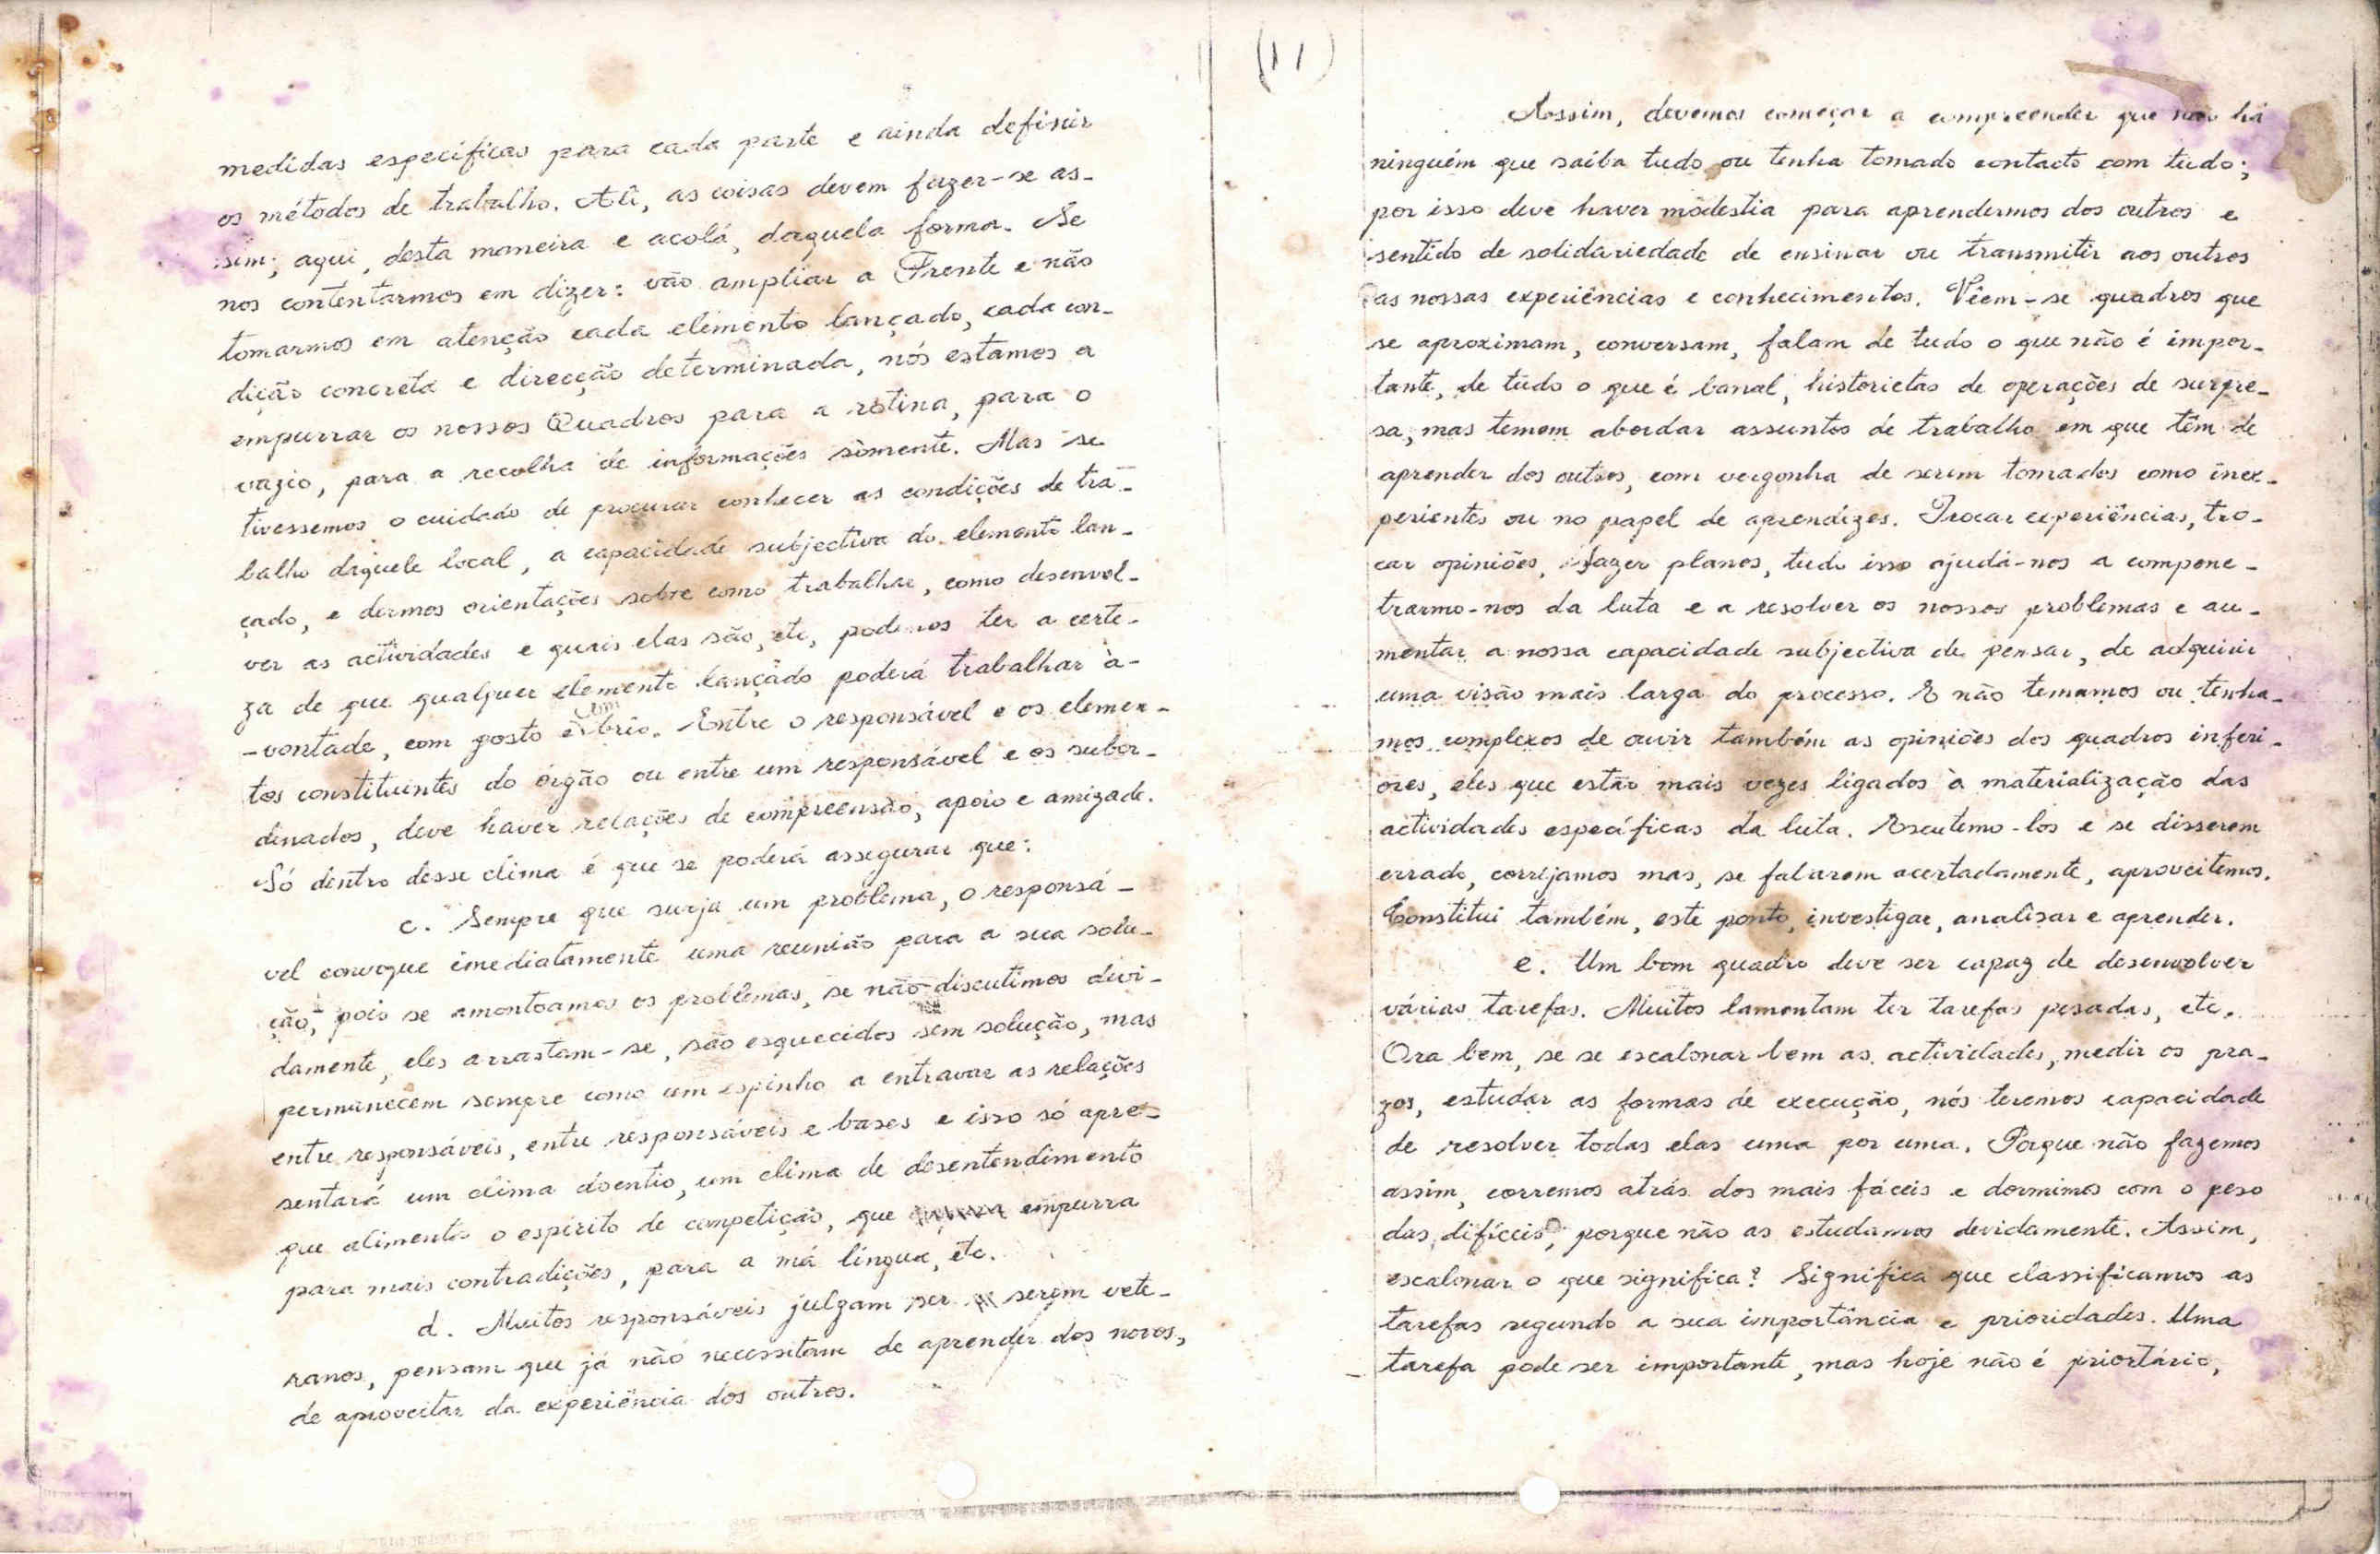 (11)
medidas específicas para cada parte e ainda definir
os métodos de trabalho. Ali, as coisas devem fazer-se as-
sim; aqui, desta maneira e acolá, daquela forma. Se
nos contentarmos em dizer: vão ampliar a Frente e não
tomarmos em atenção cada elemento lançado, cada con-
dição concreta e direcção determinada, nós estamos a
empurrar os nossos Quadros para a rotina, para o
vazio, para a recolha de informações sòmente. Mas se
tivessemos o cuidado de procurar conhecer as condições de tra-
balho daquele local, a capacidade subjectiva do elemento lan-
çado, e dermos orientações sobre como trabalhar, como desenvol-
ver as actividades e quais elas são, etc, podemos ter a certe-
za de que qualquer elemento lançado poderá trabalhar à-
-vontade, com gosto e com brio. Entre o responsável e os elemen-
tos constituintes do órgão ou entre um responsável e os subor-
dinados, deve haver relações de compreensão, apoio e amizade.
Só dentro desse clima é que se poderá assegurar que:
c. Sempre que surja um problema, o responsá-
vel convoque imediatamente uma reunião para a sua solu-
ção, pois se amontoamos os problemas, se não discutimos devi-
damente, eles arrastam-se, são esquecidos sem solução, mas
permanecem sempre como um espinho a entravar as relações
entre responsáveis, entre responsáveis e bases e isso só apre-
sentará um clima doentio, um clima de desentendimento
que alimenta o espírito de competição, que empurra
para mais contradições, para a má língua, etc.
d. Muitos responsáveis julgam ser serem vete-
ranos, pensam que já não necessitam de aprender dos novos,
de aproveitar da experiência dos outros.
Assim, devemos começar a compreender que não há
ninguém que saiba tudo ou tenha tomado contacto com tudo;
por isso deve haver modestia para aprendermos dos outros e
sentido de solidariedade de ensinar ou transmitir aos outros
as nossas experiências e conhecimentos. Vêem-se quadros que
se aproximam, conversam, falam de tudo o que não é impor-
tante, de tudo o que é banal, historietas de operações de surpre-
sa, mas temem abordar assuntos de trabalho em que têm de
aprender dos outros, com vergonha de serem tomados como inex-
perientes ou no papel de aprendizes. Trocar experiências, tro-
car opiniões, fazer planos, tudo isso ajuda-nos a compene-
trarmo-nos da luta e a resolver os nossos problemas e au-
mentar a nossa capacidade subjectiva de pensar, de adquirir
uma visão mais larga do processo. E não temamos ou tenha-
mos complexos de ouvir também as opiniões dos quadros inferi-
ores, eles que estão mais vezes ligados à materialização das
actividades específicas da luta. Escutemo-los e se disserem
errado, corrijamos mas, se falarem acertadamente, aproveitemos.
Constitui também, este ponto, investigar, analisar e aprender.
e. Um bom quadro deve ser capaz de desenvolver
várias tarefas. Muitos lamentam ter tarefas pesadas, etc.
Ora bem, se se escalonar bem as actividades, medir os pra-
zos, estudar as formas de execução, nós teremos capacidade
de resolver todas elas uma por uma. Porque não fazemos
assim, corremos atrás dos mais fáceis e dormimos com o peso
das difíceis, porque não as estudamos devidamente. Assim,
escalonar o que significa? Significa que classificamos as
tarefas segundo a sua importância e prioridades. Uma
tarefa pode ser importante, mas hoje não é priortário,